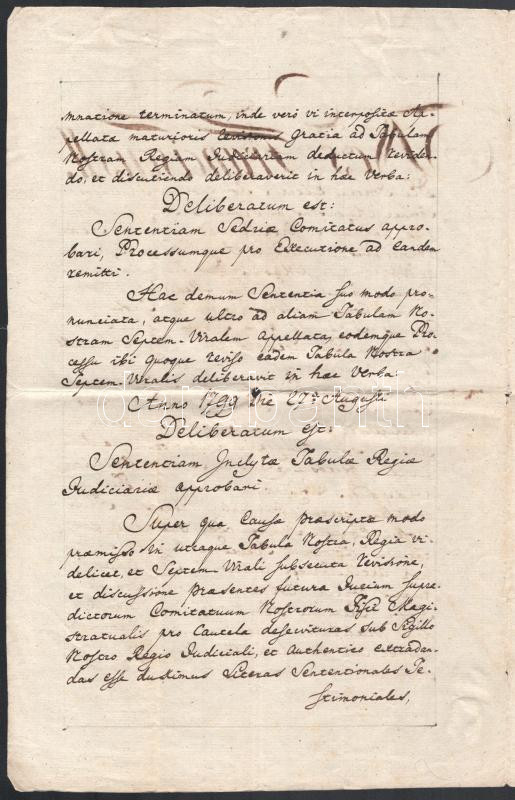 mnatione terminatum, inde verò vi interpositæ Ap-
pellatæ maturioris Revisionis Gratia ad Tabulam
Nostram Regiam Judiciariam deductum reviden-
do, et discutiendo deliberaverit in hæc verba:
Deliberatum est:
Sententiam Sedriæ Comitatus appro-
bari, Processumque pro Executione ad Eandem
remitti.
Hac demum Sententia suo modo pro-
nunciata, atque ultro ad aliam Tabulam No-
stram Septem-Viralem appellata, eodemque Pro-
cessu ibi quoque reviso eadem Tabula Nostra
Septem Viralis deliberavit in hæc verba:
Anno 1799 Die 27ª Augusti
Deliberatum est:
Sententiam Inclytæ Tabulæ Regiæ
Judiciariæ approbari.
Super qua Causa præscripto modo
præmisso in utraque Tabula Nostra, Regia vi-
delicet, et Septem Virali subsecuta Revisione,
et discussione Præsentes futura Jurium supra-
dictorum Comitatuum Nostrorum Magi-
stratualis pro Cautela deservituras sub Sigillo
Nostro Regio Judiciali, et authentico extradan-
das esse duximus Literas Sententionales Te-
stimoniales,
darabanth